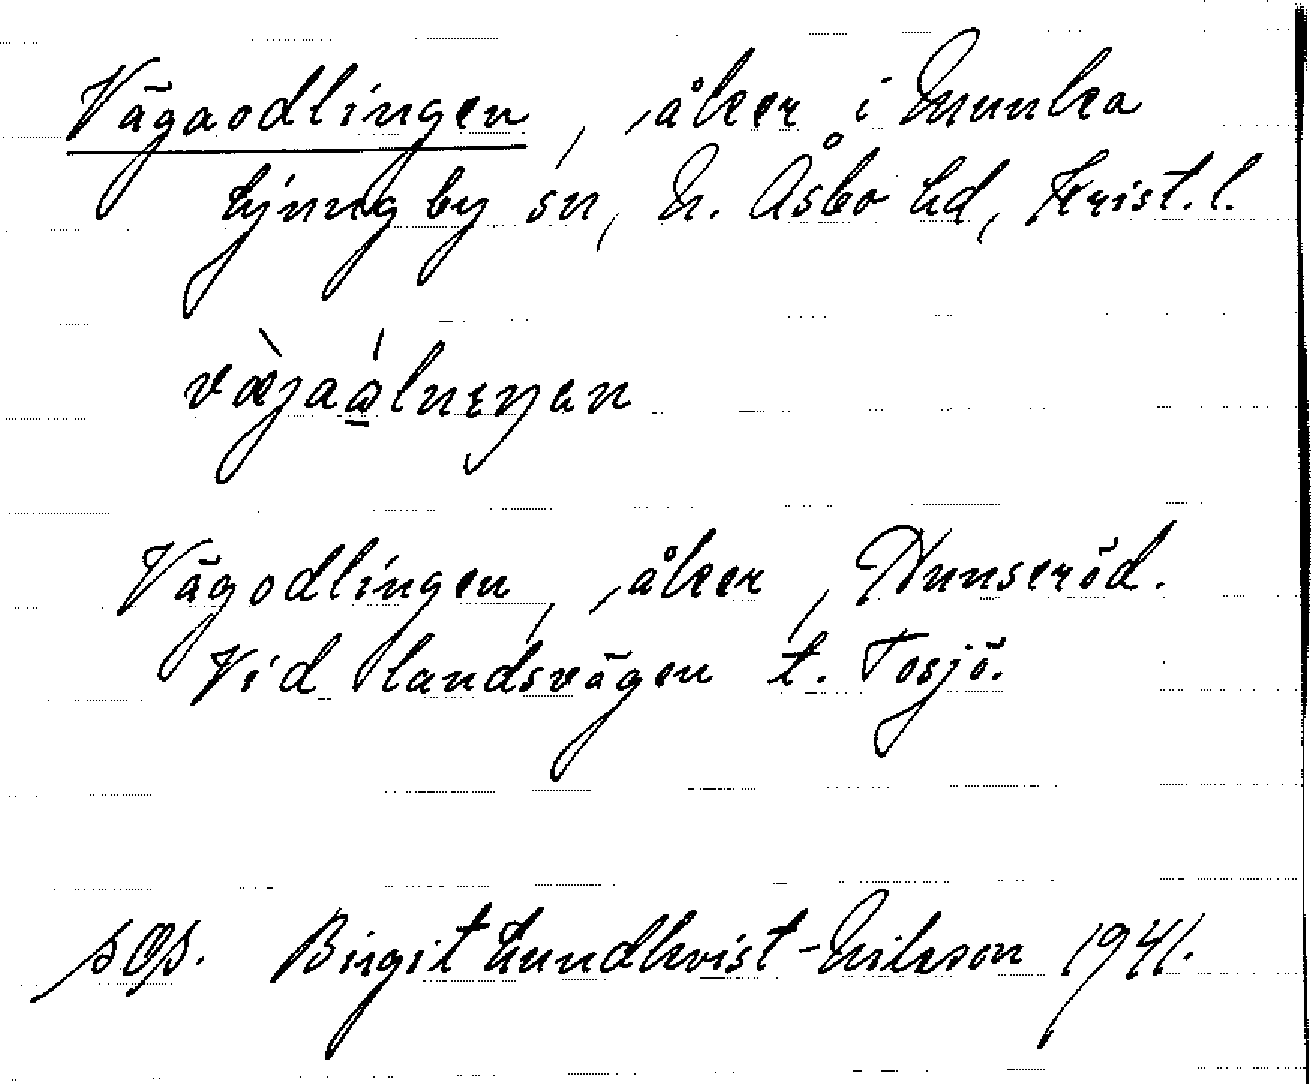 Vägaodlingen, åker i Munka
Ljungby sn, N. Åsbo hd, Krist. l.
Vägodlingen, åker, Hunseröd.
Vid landsvägen t. Tosjö.
sgs. Birgit Lundkvist-Nilsson 1941.